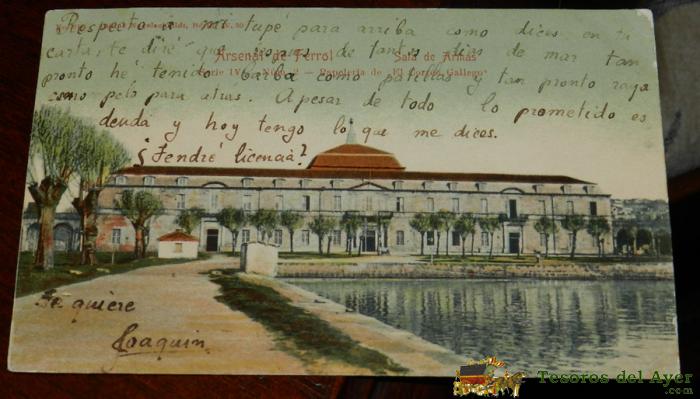 Respecto a mi tupé para arriba como dices en tu
carta, te diré que despues de tantos dias de mar tan
pronto hé tenido barba como patillas y tan pronto raya
como pelo para atras. A pesar de todo lo prometido es
deuda y hoy tengo lo que me dices.
¿Tendré licencia?
Arsenal de Ferrol Sala de Armas
Serie IV. - Núm. 2 - Papeleria de "El Correo Gallego"
Te quiere
Joaquin
Tesoros del Ayer
.com